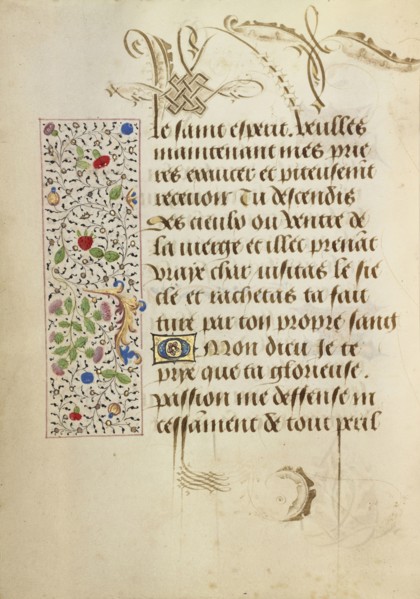 le saint esperit. Veulles
maintenant mes prie
res exaucer et piteusemẽt
recevoir Tu descendis
des cieulx ou ventre de
la vierge et illec prenãt
vraye char visitas le sie
cle et rachetas ta fait
ture par ton propre sang
O Mon dieu Je te
prye que ta glorieuse.
passion me deffense in
cessãment de tout peril